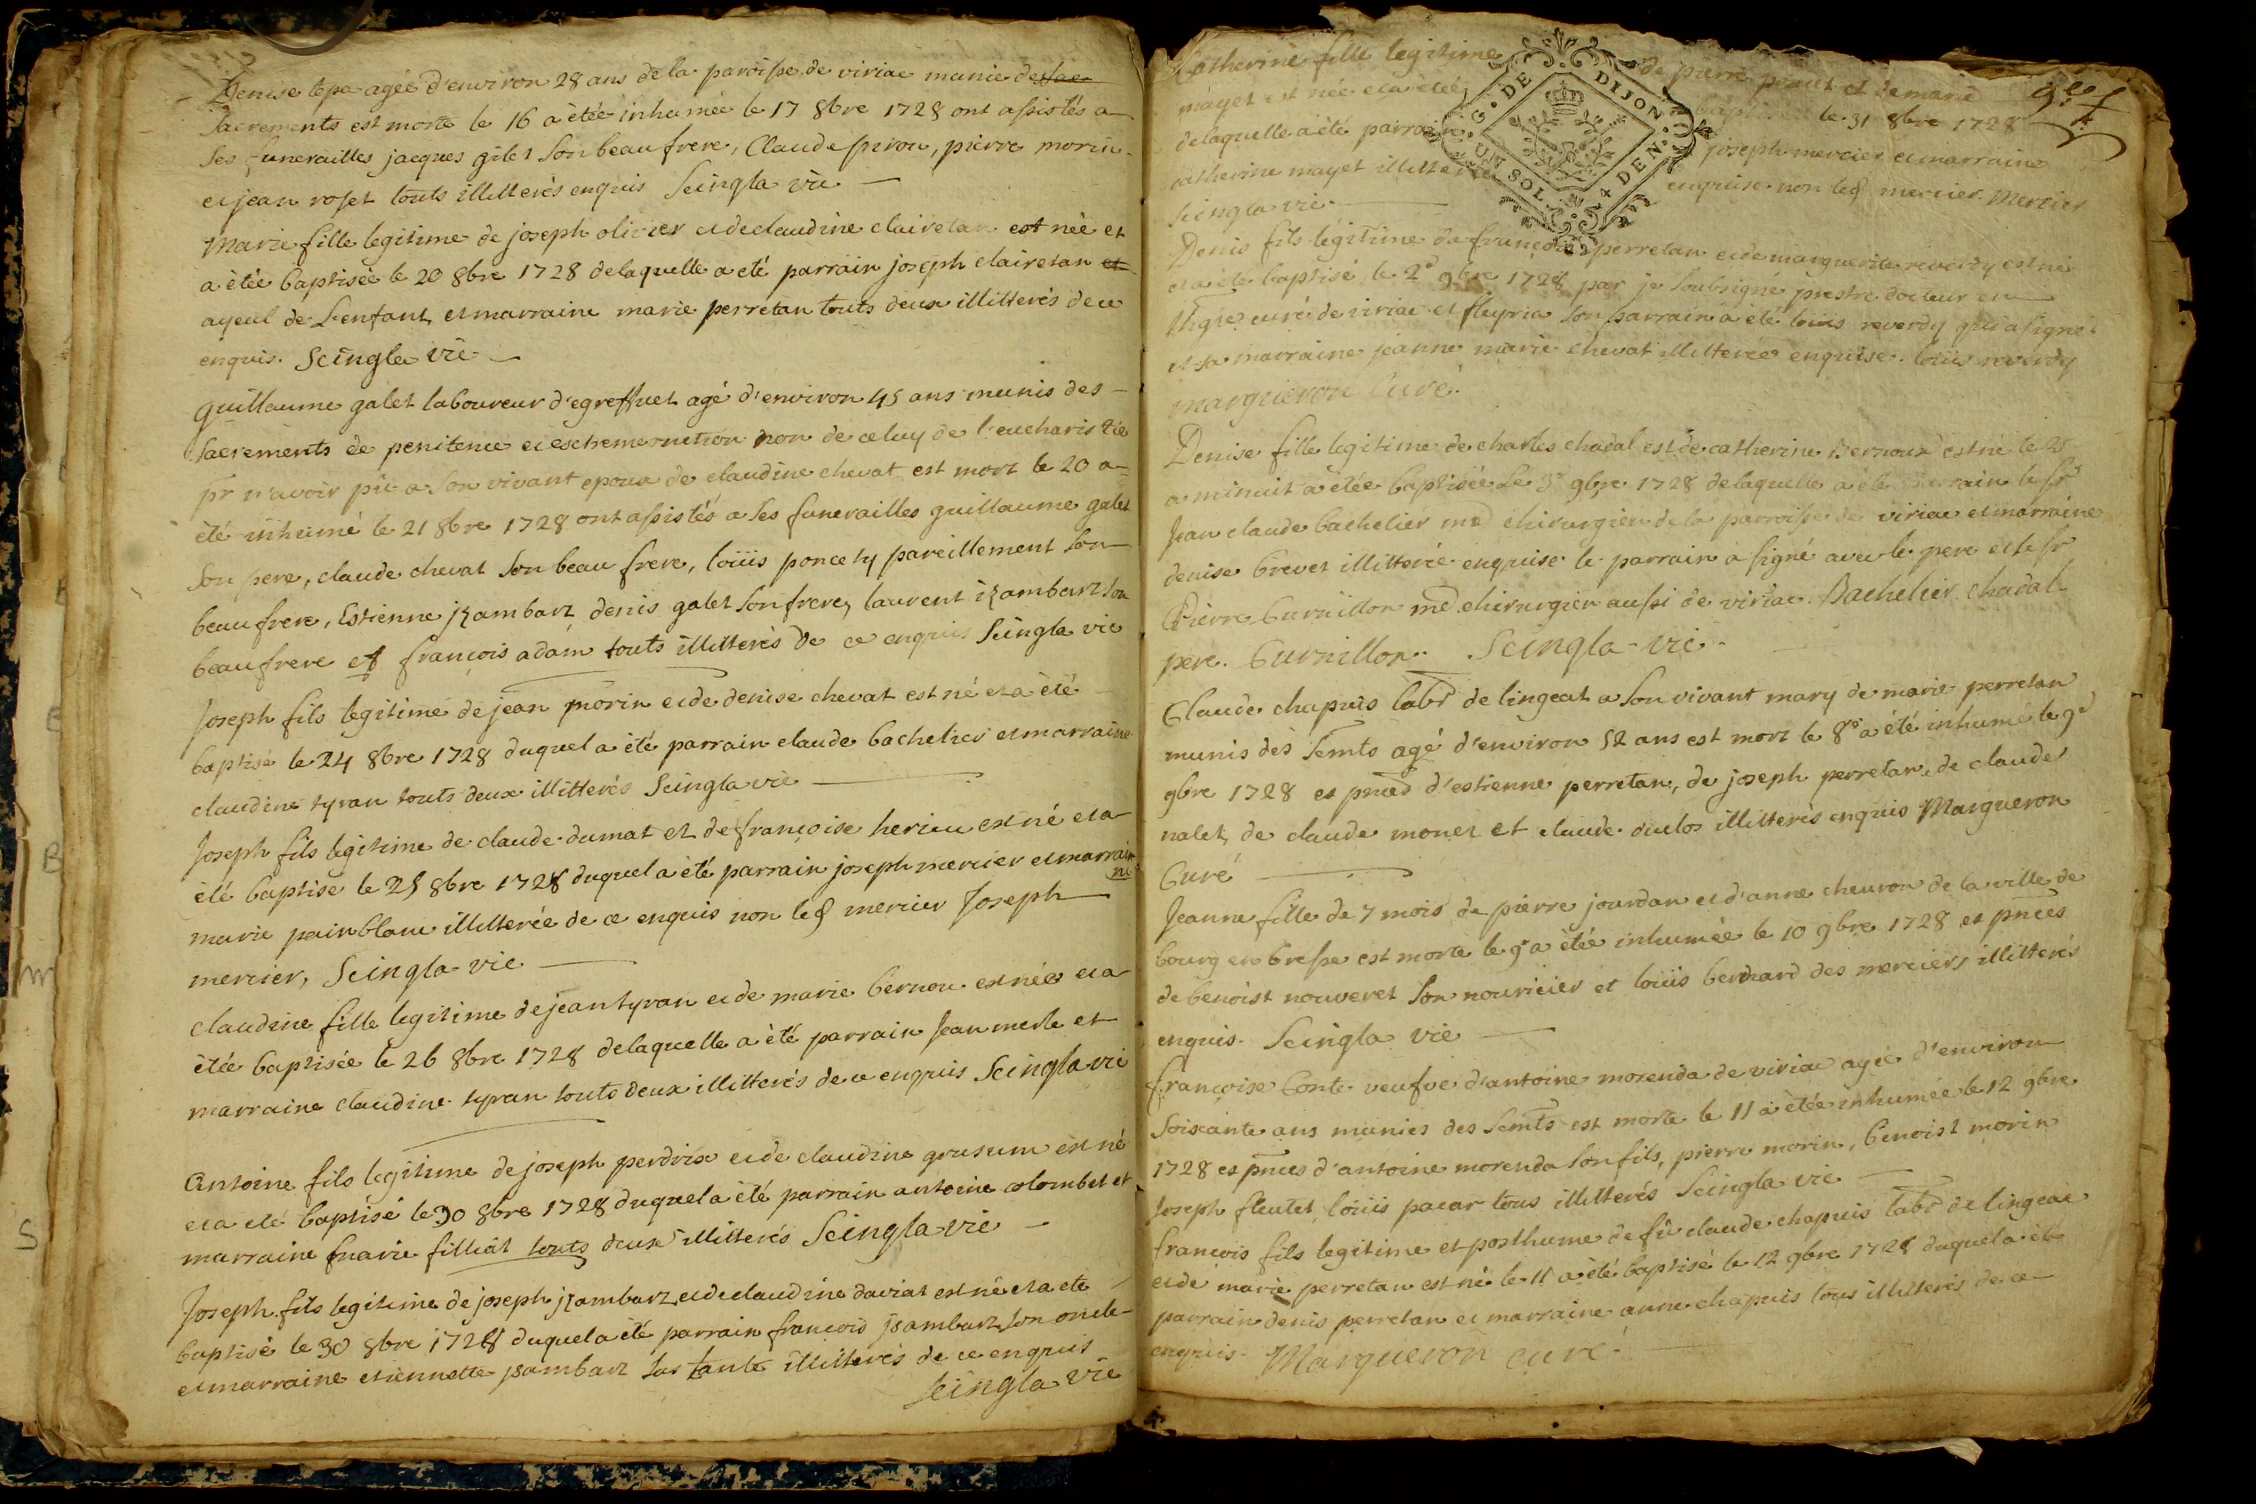 Denise lepa agée d'environ 28 ans de la paroisse de viriac munie des sac
sacrements est morte le 16 a étée inhumée le 17 8bre 1728 ont assistés a
ses funerailles jacques gilet son beau frere, Claude piron, pierre morin
et jean roset touts illitterés enquis Seingla vic
Marie fille legitime de joseph olivier et de claudine clairetan est née et
a étée baptisée le 20 8bre 1728 de laquelle a eté parrain joseph clairetan et
ayeul de L'enfant et marraine marie perretan touts deux illitterés de ce
enquis. Seingla vic
Guillaume galet laboureur d'egreffuet agé d'environ 45 ans munis des
sacrements de penitence et extreme onction non de celuy de l'eucharistie
pr n'avoir pû a son vivant epoux de claudine chevat est mort le 20 a
été inhumé le 21 8bre 1728 ont assistés a ses funerailles guillaume galet
son pere, claude chevat son beau frere, loüis poncety pareillement son
beaufrere, Estienne jzambarz denis galet son frere, laurent izambarz son
beaufrere et françois adam touts illitterés de ce enquis Seingla vic
Joseph fils legitime de jean morin et de denise chevat est né et a été
baptisé le 24 8bre 1728 duquel a été parrain claude bachelier et marraine
claudine tyran touts deux illitterés Seingla vic
Joseph fils legitime de claude dumat et de françoise herieu est né et a
été baptisé le 25 8bre 1728 duquel a été parrain joseph mercier et marraine
marie painblanc illitterée de ce enquis non led mercier Joseph
mercier, Seingla vic
Claudine fille legitime de jean tyran et de marie bernou est née et a
étée baptisée le 26 8bre 1728 de laquelle a été parrain Jean merle et
marraine claudine tyran touts deux illitterés de ce enquis Seingla vic
Antoine fils legitime de joseph perdrix et de claudine grusum est né
et a eté baptisé le 30 8bre 1728 duquel a été parrain antoine colombet et
marraine marie filliat touts deux illitterés Seingla vic
Joseph fils legitime de joseph jzambarz et de claudine daviat est né et a eté
baptisé le 30 8bre 1728 duquel a été parrain françois jsambarz son oncle
et marraine etiennette jsambarz sa tante illitterés de ce enquis
Seingla vic
Catherine fille legitime de pierre et de marie
mayet est née et a étée baptisée le 31 8bre 1728
de laquelle a été parrain joseph mercier et marraine
catherine mayet illitterée enquise non led mercier. Mercier
Seingla vic
G. DE DIJON
UN SOL 4 DEN.
Denis fils legitime de françois perretan et de marguerite reverdy est né
et a été baptisé le 2e 9bre 1728 par je soubsigné prestre docteur en
curé de viriac et fleyria son parrain a été loüis reverdy qui a signé
et sa marraine jeanne marie chevat illitterée enquise. loüis reverdy
margueron Curé.
Denise fille legitime de charles chadal est de catherine Bernoux est née le
a minuit a étée baptisée le 3e 9bre 1728 de laquelle a été parrain le sr
Jean claude bachelier md chirurgien de la parroisse de viriac et marraine
denise brevet illitterée enquise le parrain a signé avec le pere et le sr
Pierre Curnillon md chirurgien aussi de viriac. Bachelier Chadal
pere. Curnillon. Seingla vic.
Claude chapuis labr de lingeat a son vivant mary de marie perretan
munis des semts agé d'environ 52 ans est mort le 8e a été inhumé le 9e
9bre 1728 es pnces d'estienne perretan, de joseph perretan, de claude
nalet, de claude monet et claude duclos illitterés enquis Margueron
Curé
Jeanne fille de 7 mois de pierre jourdan et d'anne chevron de la ville de
bourg en bresse est morte le 9e a étée inhumée le 10 9bre 1728 es pnces
de benoist nouveret son nouricier et loüis bernard des merciers illitterés
enquis. Seingla vic
françoise Conte veufve d'antoine morenda de viriac agée d'environ
soixante ans munies des semts est morte le 11 a étée inhumée le 12 9bre
1728 es pnces d'antoine morenda son fils, pierre morin, benoist morin
Joseph fleutet, loüis pacar tous illitterés Seingla vic
francois fils legitime et posthume de fû claude chapuis labr de lingeat
et de marie perretan est né le 11 a été baptisé le 12 9bre 1728 duquel a été
parrain denis perretan et marraine anne chapuis tous illiterés de ce
enquis. Margueron curé.